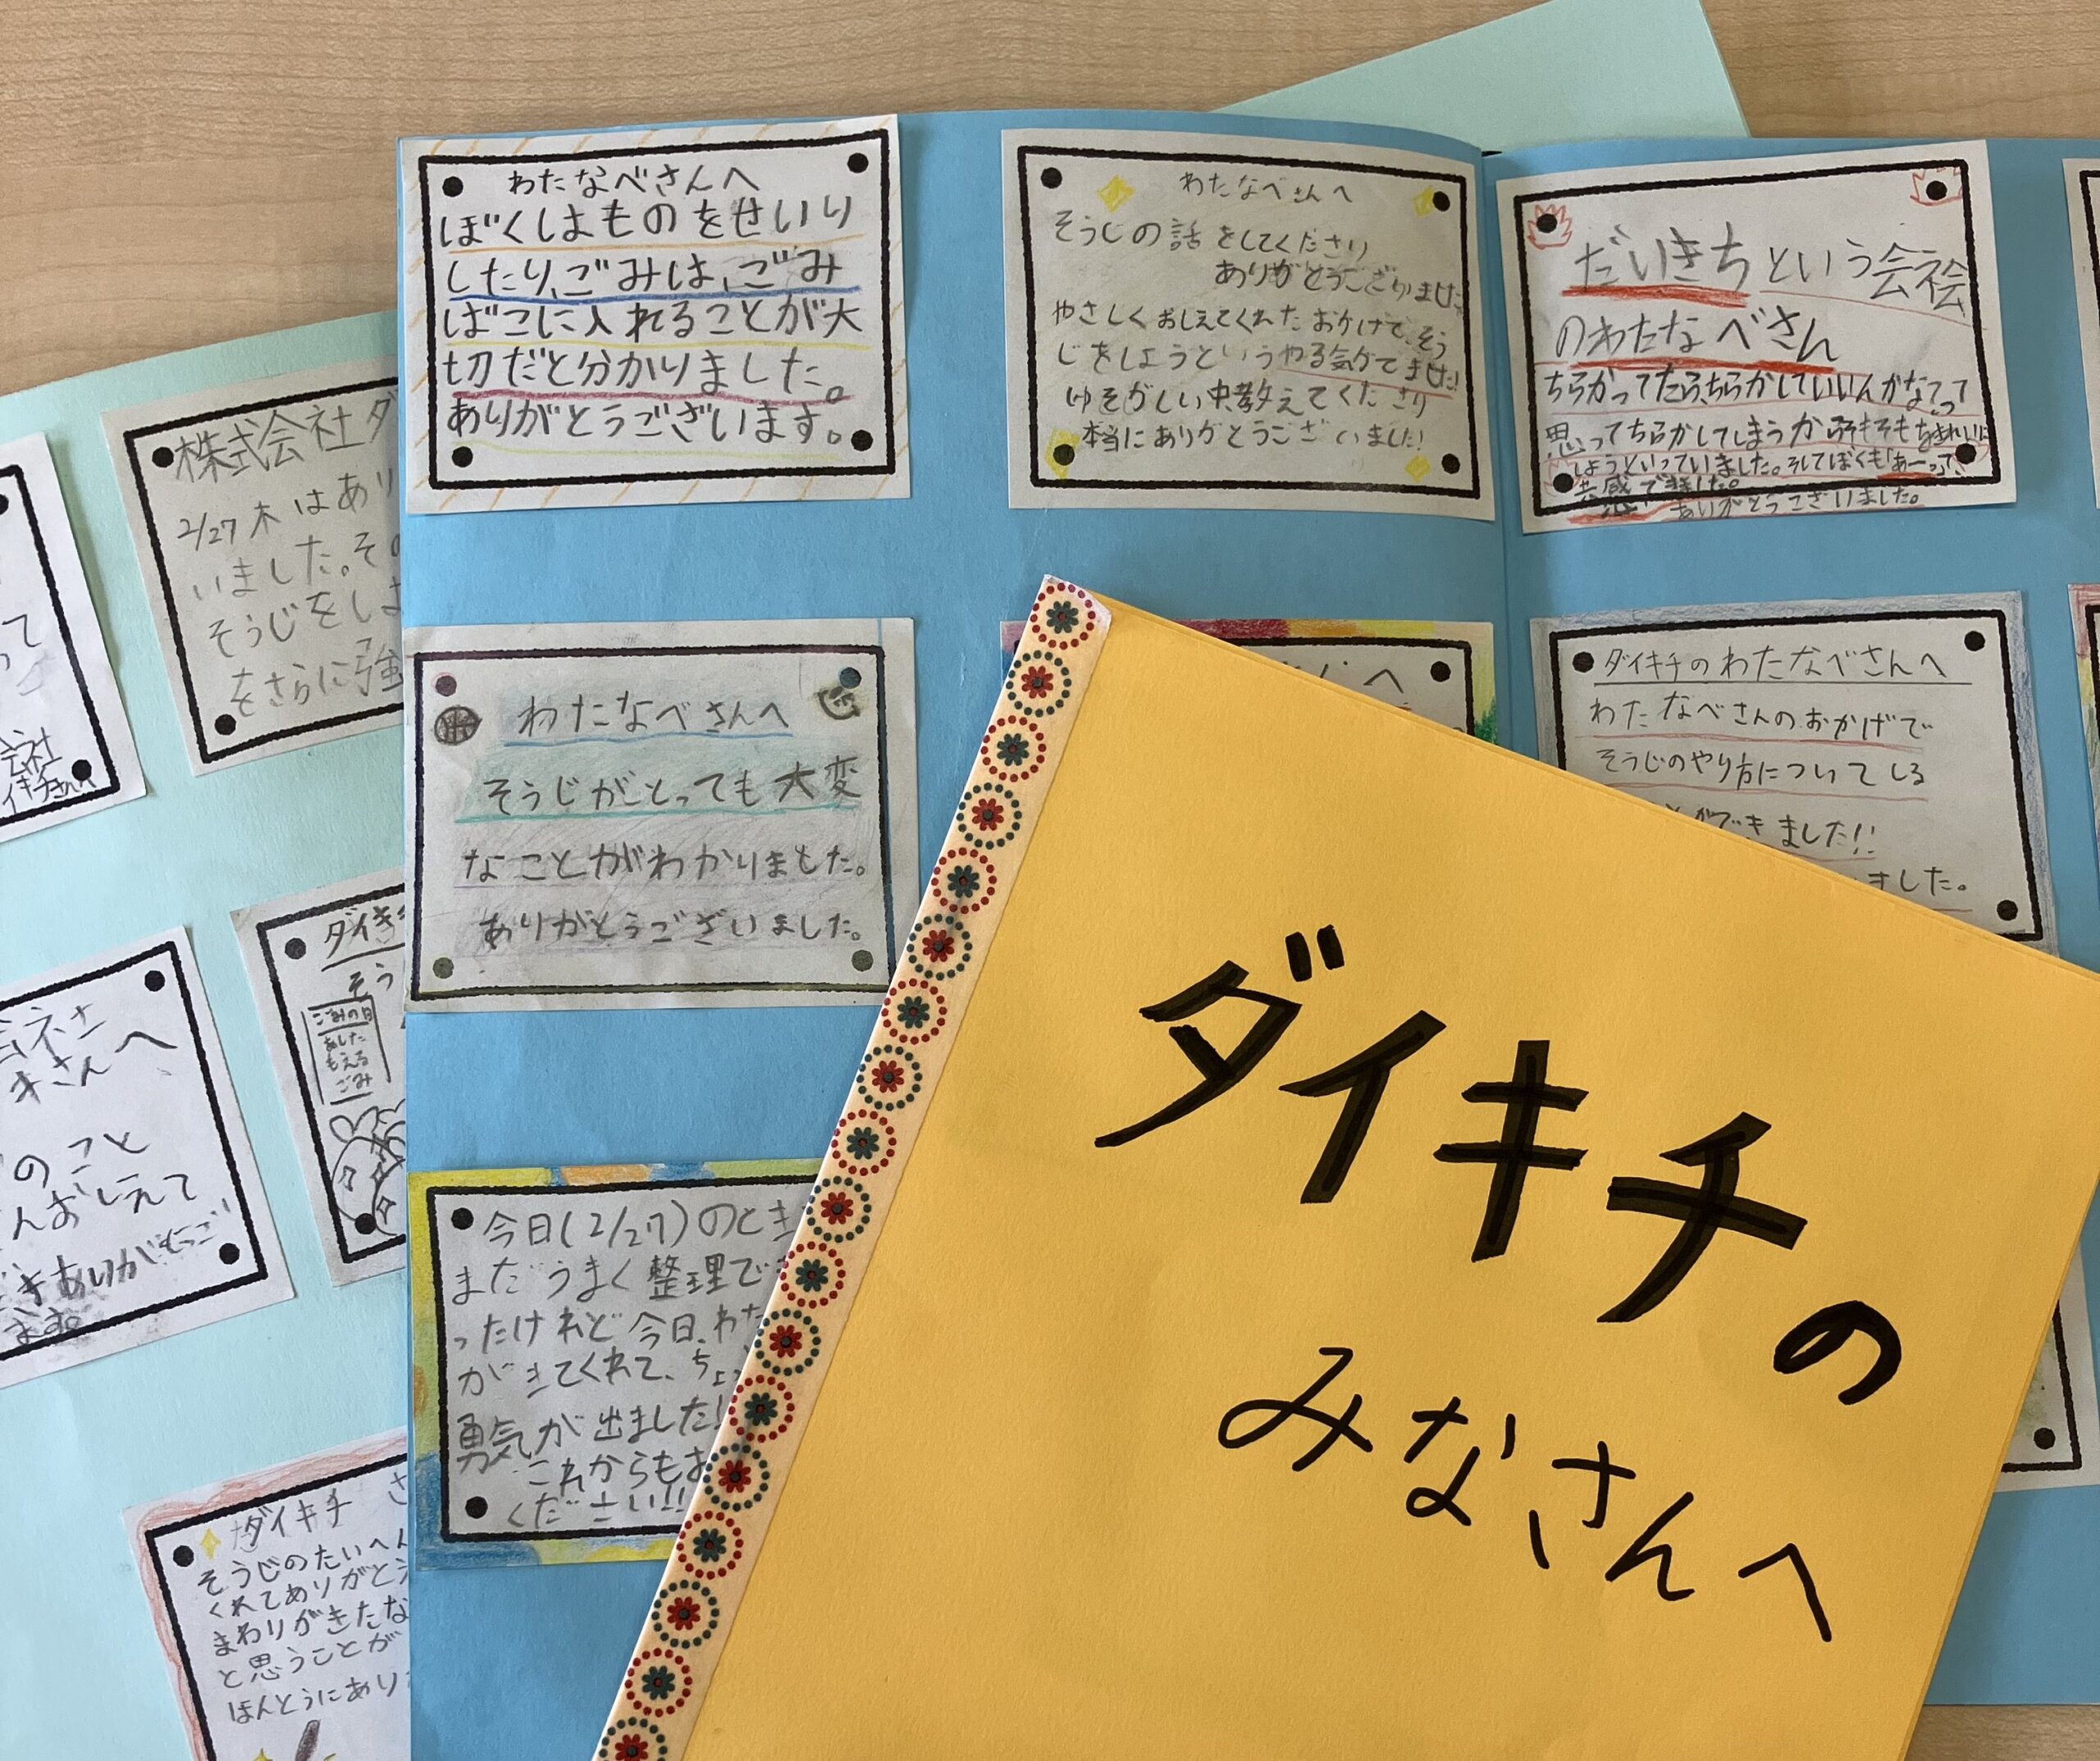 わたなべさんへ
ぼくはものをせいり
したり、ごみは、ごみ
ばこに入れることが大
切だと分かりました。
ありがとうございます。
わたなべさんへ
そうじの話をしてくださり
ありがとうございました
やさしくおしえてくれたおかげで、そう
じをしようというやる気がでました!
いそがしい中教えてくださり
本当にありがとうございました!
だいきちという会社
のわたなべさん
ちらかってたら、ちらかしていいんかなてって
思ってちらかしてしまうからそもそもをきれいに
しようといっていました。そしてぼくも「あーっ」て、
共感できました。
ありがとうございました。
わたなべさんへ
そうじがとっても大変
なことがわかりました。
ありがとうございました。
へ
ダイキチのわたなべさんへ
わたなべさんのおかげで
そうじのやり方についてしる
ができました!!
ました。
今日(2/27)のとき
まだうまく整理で
ったけれど今日、わた
がきてくれて、ちょ
勇気が出ました!
これからもお
ください!!
株式会社ダ
2/27木はあり
いました。その
そうじをしま
をさらに強
って
会社
イキチさんへ
会社
きさんへ
のこと
んおしえて
ありがとうご
ます。
ダイキチ
そう
ごみの日
あした
もえる
ごみ
ダイキチ さ
そうじのたいへん
くれてありがとう
まわりがきたな
と思うことが
ほんとうにあり
ダイキチの
みなさんへ